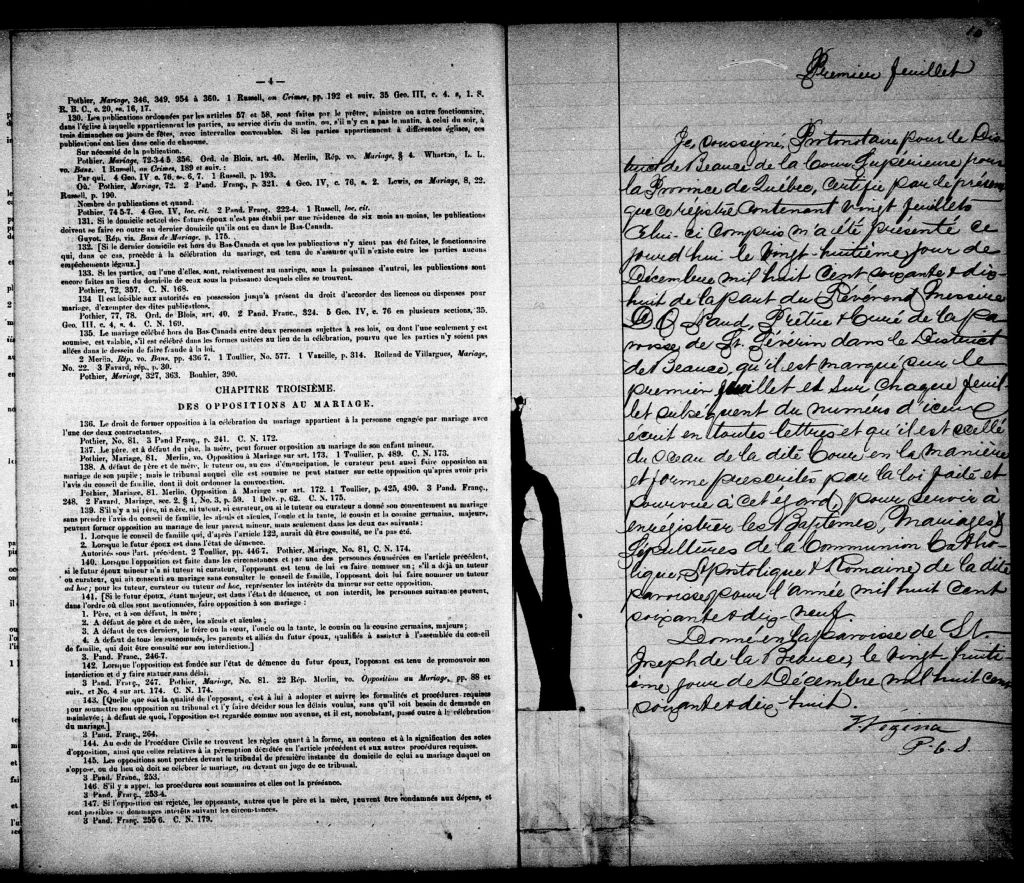 — 4 —
Pothier, Mariage, 346, 349, 954 à 360. 1 Russell, on Crimes, pp. 192 et suiv. 35 Geo. III, c. 4. s, 1. S.
R. B. C., c. 20, ss. 16, 17.
130. Les publications ordonnées par les articles 57 et 58, sont faites par le prêtre, ministre ou autre fonctionnaire,
dans l'église à laquelle appartiennent les parties, au service divin du matin, ou, s'il n'y en a pas le matin, à celui du soir, à
trois dimanches ou jours de fêtes, avec intervalles convenables. Si les parties appartiennent à différentes églises, ces
publications ont lieu dans celle de chacune.
Sur nécessité de la publication.
Pothier, Mariage, 72-3-4 5. 356. Ord. de Blois, art. 40. Merlin, Rép. vo. Mariage, § 4. Wharton, L. L.
vo. Bans. 1 Russell, on Crimes, 189 et suiv.
Par qui. 4 Geo IV, c. 76, ss. 6, 7. 1 Russell, p. 193.
Où. Pothier, Mariage, 72. 2 Pand. Franç., p. 321. 4 Geo. IV, c. 76, s. 2. Lewis, on Mariage, 8, 22.
Russell, p. 190.
Nombre de publications et quand.
Pothier, 74 5-7. 4 Geo. IV, loc. cit. 2 Pand. Franç. 222-4. 1 Russell, loc. cit.
131. Si le domicile actuel des futurs époux n'est pas établi par une résidence de six mois au moins, les publications
doivent se faire en outre au dernier domicile qu'ils ont eu dans le Bas-Canada.
Guyot. Rép. vis. Bans de Mariage, p. 175.
132. [Si le dernier domicile est hors du Bas-Canada et que les publications n'y aient pas été faites, le fonctionnaire
qui, dans ce cas, procède à la célébration du mariage, est tenu de s'assurer qu'il n'existe entre les parties aucuns
empêchements légaux.]
133. Si les parties, ou l'une d'elles, sont, relativement au mariage, sous la puissance d'autrui, les publications sont
encore faites au lieu du domicile de ceux sous la puissance desquels elles se trouvent.
Pothier, 72, 357. C. N. 168.
134 Il est loisible aux autorités en possession jusqu'à présent du droit d'accorder des licences ou dispenses pour
mariage, d'exempter des dites publications.
Pothier, 77, 78. Ord. de Blois, art. 40. 2 Pand. Franç., 324. 5 Geo. IV, c. 76 en plusieurs sections, 35.
Geo. III, c. 4, s. 4. C. N. 169.
135. Le mariage célébré hors du Bas-Canada entre deux personnes sujettes à ses lois, ou dont l'une seulement y est
soumise, est valable, s'il est célébré dans les formes usitées au lieu de la célébration, pourvu que les parties n'y soient pas
allées dans le dessein de faire fraude à la loi.
2 Merlin, Rép. vo. Bans, pp. 436 7. 1 Toullier, No. 577. 1 Vazeille, p. 314. Rolland de Villargues, Mariage,
No. 22. 3 Favard, rép., p. 30.
Pothier, Mariage, 327, 363. Bouhier, 390.
CHAPITRE TROISIÈME.
DES OPPOSITIONS AU MARIAGE.
136. Le droit de former opposition à la célébration du mariage appartient à la personne engagée par mariage avec
l'une des deux contractantes.
Pothier, No. 81. 3 Pand Franç., p. 241. C. N. 172.
137. Le père, et à défaut du père, la mère, peut former opposition au mariage de son enfant mineur.
Pothier, Mariage, 81. Merlin, vo. Opposition à Mariage sur art. 173. 1 Toullier, p. 489. C. N. 173.
138. A défaut de père et de mère, le tuteur ou, au cas d'émancipation, le curateur peut aussi faire opposition au
mariage de son pupille; mais le tribunal auquel elle est soumise ne peut statuer sur cette opposition qu'après avoir pris
l'avis du conseil de famille, dont il doit ordonner la convocation.
Pothier, Mariage, 81. Merlin, Opposition à Mariage sur art. 172. 1 Toullier, p. 425, 490. 3 Pand. Franç.,
248. 2 Favard, Mariage, sec. 2, § 1, No. 3, p. 59. 1 Delv. p. 62. C. N. 175.
139. S'il n'y a ni père, ni mère, ni tuteur, ni curateur, ou si le tuteur ou curateur a donné son consentement au mariage
sans prendre l'avis du conseil de famille, les aïeuls et aïeules, l'oncle et la tante, le cousin et la cousine germains, majeurs,
peuvent former opposition au mariage de leur parent mineur, mais seulement dans les deux cas suivants:
1. Lorsque le conseil de famille qui, d'après l'article 122, aurait dû être consulté, ne l'a pas été;
2. Lorsque le futur époux est dans l'état de démence.
Autorités sous l'art. précédent. 2 Toullier, pp. 446-7. Pothier, Mariage, No. 81, C. N. 174.
140. Lorsque l'opposition est faite dans les circonstances et par une des personnes énumérées en l'article précédent,
si le futur époux mineur n'a ni tuteur ni curateur, l'opposant est tenu de lui en faire nommer un; s'il a déjà un tuteur
ou curateur, qui ait consenti au mariage sans consulter le conseil de famille, l'opposant doit lui faire nommer un tuteur
ad hoc; pour les tuteur, curateur ou tuteur ad hoc, représenter les intérêts du mineur sur cette opposition.
141. [Si le futur époux, étant majeur, est dans l'état de démence, et non interdit, les personnes suivantes peuvent,
dans l'ordre où elles sont mentionnées, faire opposition à son mariage:
1. Père, et à son défaut, la mère;
2. A défaut de père et de mère, les aïeuls et aïeules;
3. A défaut de ces derniers, le frère ou la sœur, l'oncle ou la tante, le cousin ou la cousine germains, majeurs;
4. A défaut de tous les susnommés, les parents et alliés du futur époux, qualifiés à assister à l'assemblée du conseil
de famille, qui doit être consulté sur son interdiction.]
3. Pand. Franc., 246-7.
142. Lorsque l'opposition est fondée sur l'état de démence du futur époux, l'opposant est tenu de promouvoir son
interdiction et d'y faire statuer sans délai.
3 Pand. Franç., 247. Pothier, Mariage, No. 81. 22 Rép. Merlin, vo. Opposition au Mariage, pp. 88 et
suiv., et No. 4 sur art. 174. C. N. 174.
143. [Quelle que soit la qualité de l'opposant, c'est à lui à adopter et suivre les formalités et procédures requises
pour soumettre son opposition au tribunal et l'y faire décider sous les délais voulus, sans qu'il soit besoin de demande en
mainlevée; à défaut de quoi, l'opposition est regardée comme non avenue, et il est, nonobstant, passé outre à la célébration
du mariage.]
3 Pand. Franç., 264.
144. Au code de Procédure Civile se trouvent les règles quant à la forme, au contenu et à la signification des actes
d'opposition, ainsi que celles relatives à la péremption décrétée en l'article précédent et aux autres procédures requises.
145. Les oppositions sont portées devant le tribunal de première instance du domicile de celui au mariage duquel on
s'oppose, ou du lieu où doit se célébrer le mariage, ou devant un juge de ce tribunal.
3 Pand. Franc., 253.
146. S'il y a appel, les procédures sont sommaires et elles ont la préséance.
3 Pand. Franç., 253-4.
147. Si l'opposition est rejetée, les opposants, autres que le père et la mère, peuvent être condamnés aux dépens, et
sont passibles de dommages intérêts suivant les circonstances.
3 Pand. Franç. 255 6. C. N. 179.
Premier feuillet
Je, soussigné, Protonotaire pour le Dis-
trict de Beauce de la Cour Supérieure pour
la Province de Québec, certifie par le présent
que ce régistre contenant vingt feuillets
celui-ci compris m'a été présenté ce
jourd'hui le vingt-huitième jour de
Décembre mil huit cent soixante & dix-
huit de la part du Révérend Messire
Naud, Prêtre & Curé de la pa
roisse de St. Séverin dans le District
de Beauce, qu'il est marqué sur le
premier feuillet et sur chaque feuil-
let subséquent du numéro d'iceux
écrit en toutes lettres et qu'il est scellé
du sceau de la dite Cour en la manière
et forme prescrites par la loi faite et
pourvue à cet égard, pour servir à
enregistrer les Baptêmes, Mariages &
Sépultures de la Communion Catho-
lique, Apostolique & Romaine, de la dite
paroisse, pour l'année mil huit cent
soixante & dix-neuf.
Donné en la paroisse de St.
Joseph de la Beauce, le vingt-huiti
ème jour de Décembre mil huit cent
soixante et dix-huit.